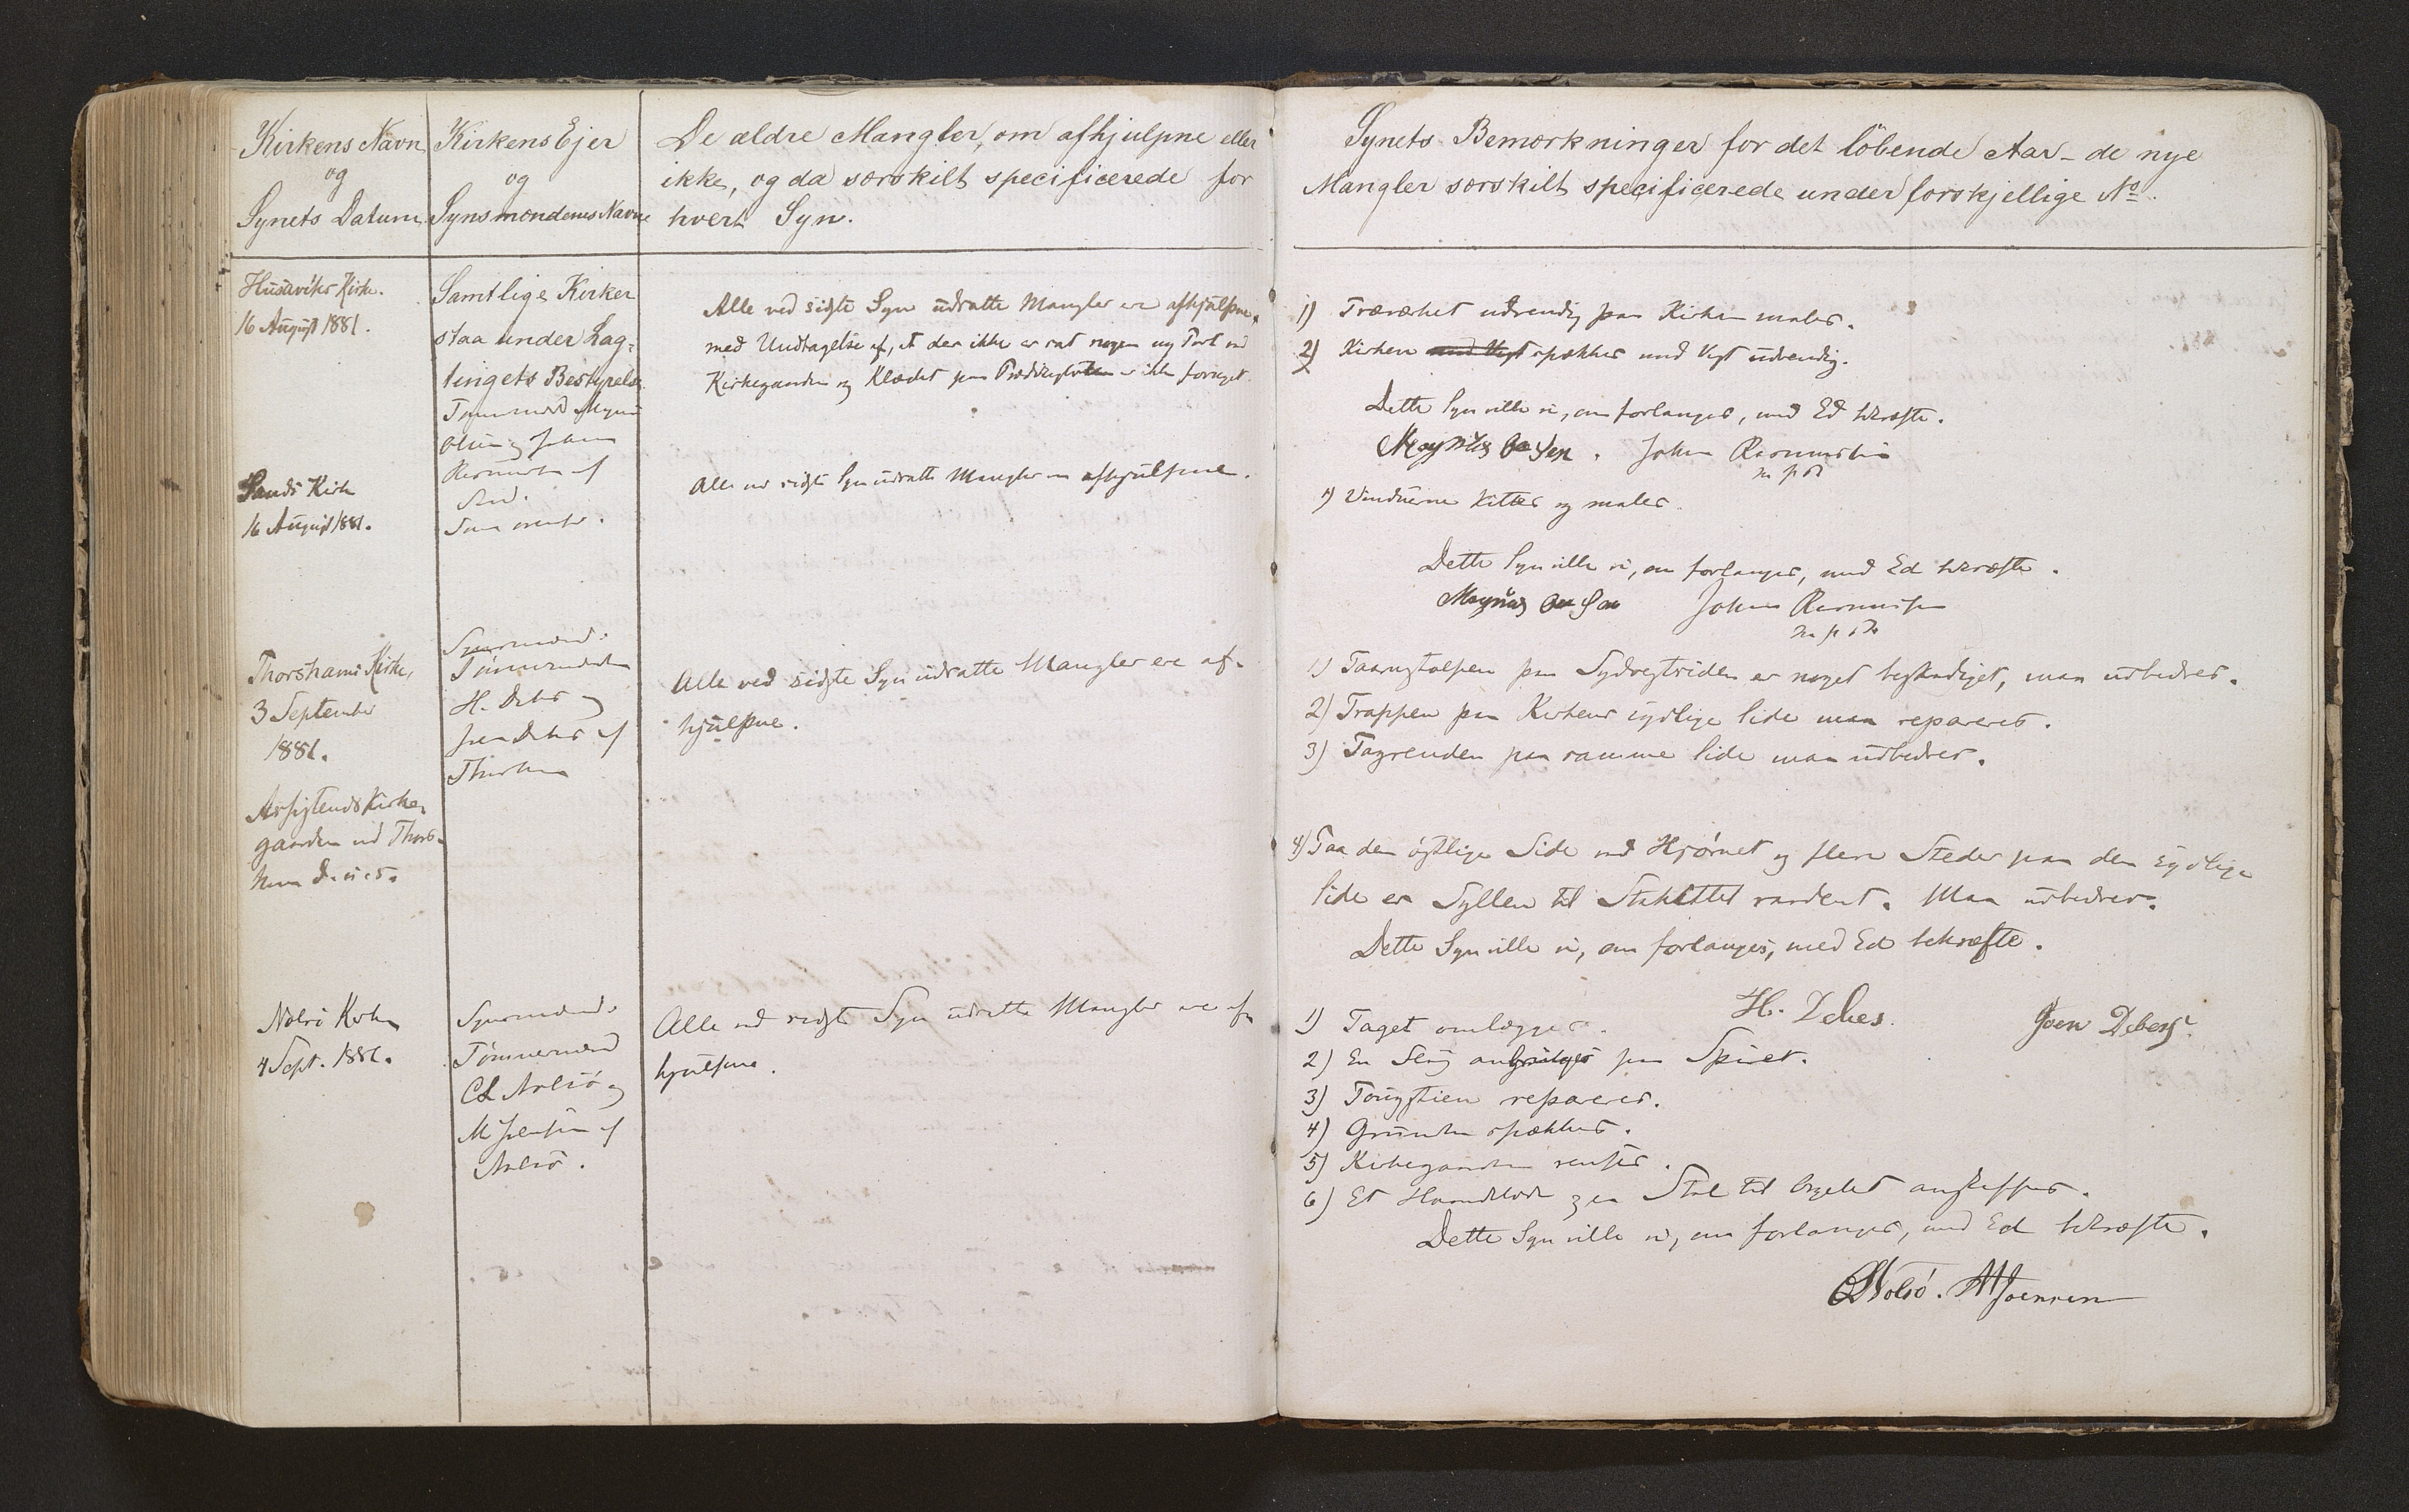 Kirkens Navn
og
Synets Datum
Kirkens Ejer
og
Synsmændenes Navne
De ældre Mangler, om afhjulpne eller
ikke, og da særskilt specificerede for
hvert Syn.
Husaviks Kirke.
16 August 1881.
Samtlige Kirker
staa under Lag-
tingets Bestyrelse.
Tømmermænd Magnus
Olsen og Johan
Rasmussen af
Sand.
Alle ved sidste Syn udsatte Mangler ere afhjulpne,
med Undtagelse af, at der ikke er sat nogen ny Port ved
Kirkegaarden og Klædet paa Prædikestolen er ikke fornyet.
Sands Kirke
16 August 1881.
Som ovenfor.
Alle ved sidste Syn udsatte Mangler ere afhjulpne.
Thorshavns Kirke,
3 September
1881.
Synsmænd:
Tømmermændene
H. Debes og
Joen Debes af
Thorshavn
Alle ved sidste Syn udsatte Mangler ere af-
hjulpne.
Assistents Kirke-
gaarden ved Thors-
havn
Nolsø Kirke
4 Sept. 1881.
Synsmænd:
Tømmermænd
Nolsø og
M Joensen af
Nolsø.
Alle ved sidste Syn udsatte Mangler ere af-
hjulpne.
Synets Bemærkninger for det löbende Aar - de nye
Mangler særskilt specificerede under forskjellige No.
1) Træværket udvendig paa Kirken males.
2) Kirken med Vegt spækkes med Vegt udvendig.
Dette Syn ville vi, om forlanges, med Ed bekræfte.
Magnus Olsen. Johan Rasmussen
m p s
1) Vinduerne kittes og males.
Dette Syn ville vi, om forlanges, med Ed bekræfte.
Magnus Olsen Johan Rasmussen
m p s
1) Taarnstolpen paa Sydvestsiden er noget beskadiget, maa udbedres.
2) Trappen paa Kirkens sydlige Side maa repareres.
3) Tagrenden paa samme Side maa udbedres.
4) Paa den østlige Side ved Hjørnet og flere Steder paa den sydlige
Side er Syllen til Stakittet raadent. Maa udbedres.
Dette Syn ville vi, om forlanges, med Ed bekræfte.
H. Debes. Joen Debes
1) Taget omlægges.
2) En Fløj anbringes paa Spiret.
3) Tougstien repareres.
4) Grunden spækkes.
5) Kirkegaarden renses.
6) Et og en Stol til Orgelet anskaffes.
Dette Syn ville vi, om forlanges, med Ed bekræfte.
Nolsø. M Joensen